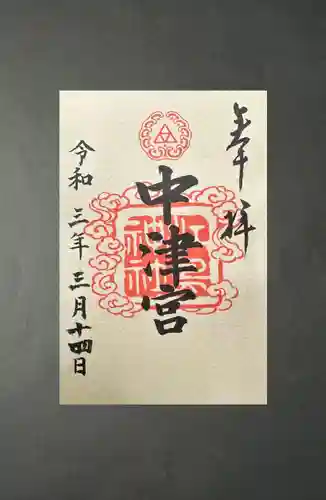 奉拝
中津宮
令和三年三月十四日